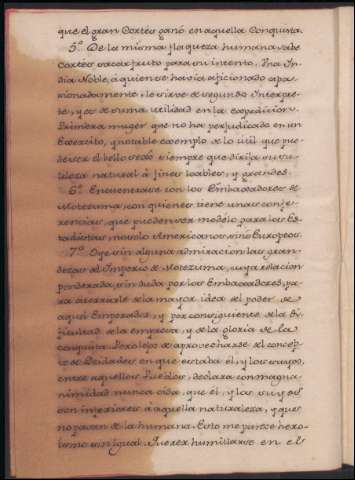 que el gran Cortés ganó en aquella Conquista.
5º De la misma flaqueza humana sabe
Cortés sacar fruto para su intento. Una In-
dia Noble, á quien se havia aficionado apa-
sionadamente, le sirve de segundo Interpre-
te, y es de suma utilidad en la expedicion.
Primera muger que no ha perjudicado en un
Exercito, y notable exemplo de lo util que pue-
de ser el bello sexô siempre que dirija su su-
tileza natural á fines loables, y grandes.
6º Encuentrase con los Embaxadores de
Motezuma, con quienes tiene unas confe-
rencias, que pueden ser modelo para los Es-
tadistas, no solo Americanos, sino Europeos.
7º Oye sin alguna admiracion las gran-
dezas del Imperio de Motezuma, cuya relacion
ponderada sin duda por los Embaxadores, pa-
ra la mayor idea del poder de
aquel Emperador, y por consiguiente de la di-
ficultad de la empresa, y de la gloria de la
conquista. Pero lejos de aprovecharse del concep-
to de Deidades en que estaba él, y los suyos,
entre aquellos Pueblos, declara con magna-
nimidad nunca oida, que él, y los suyos
son inferiores á aquella naturaleza, y que
no pasan de la humana. Esto me parece hero-
ismo sin igual. Querer humillarse en el